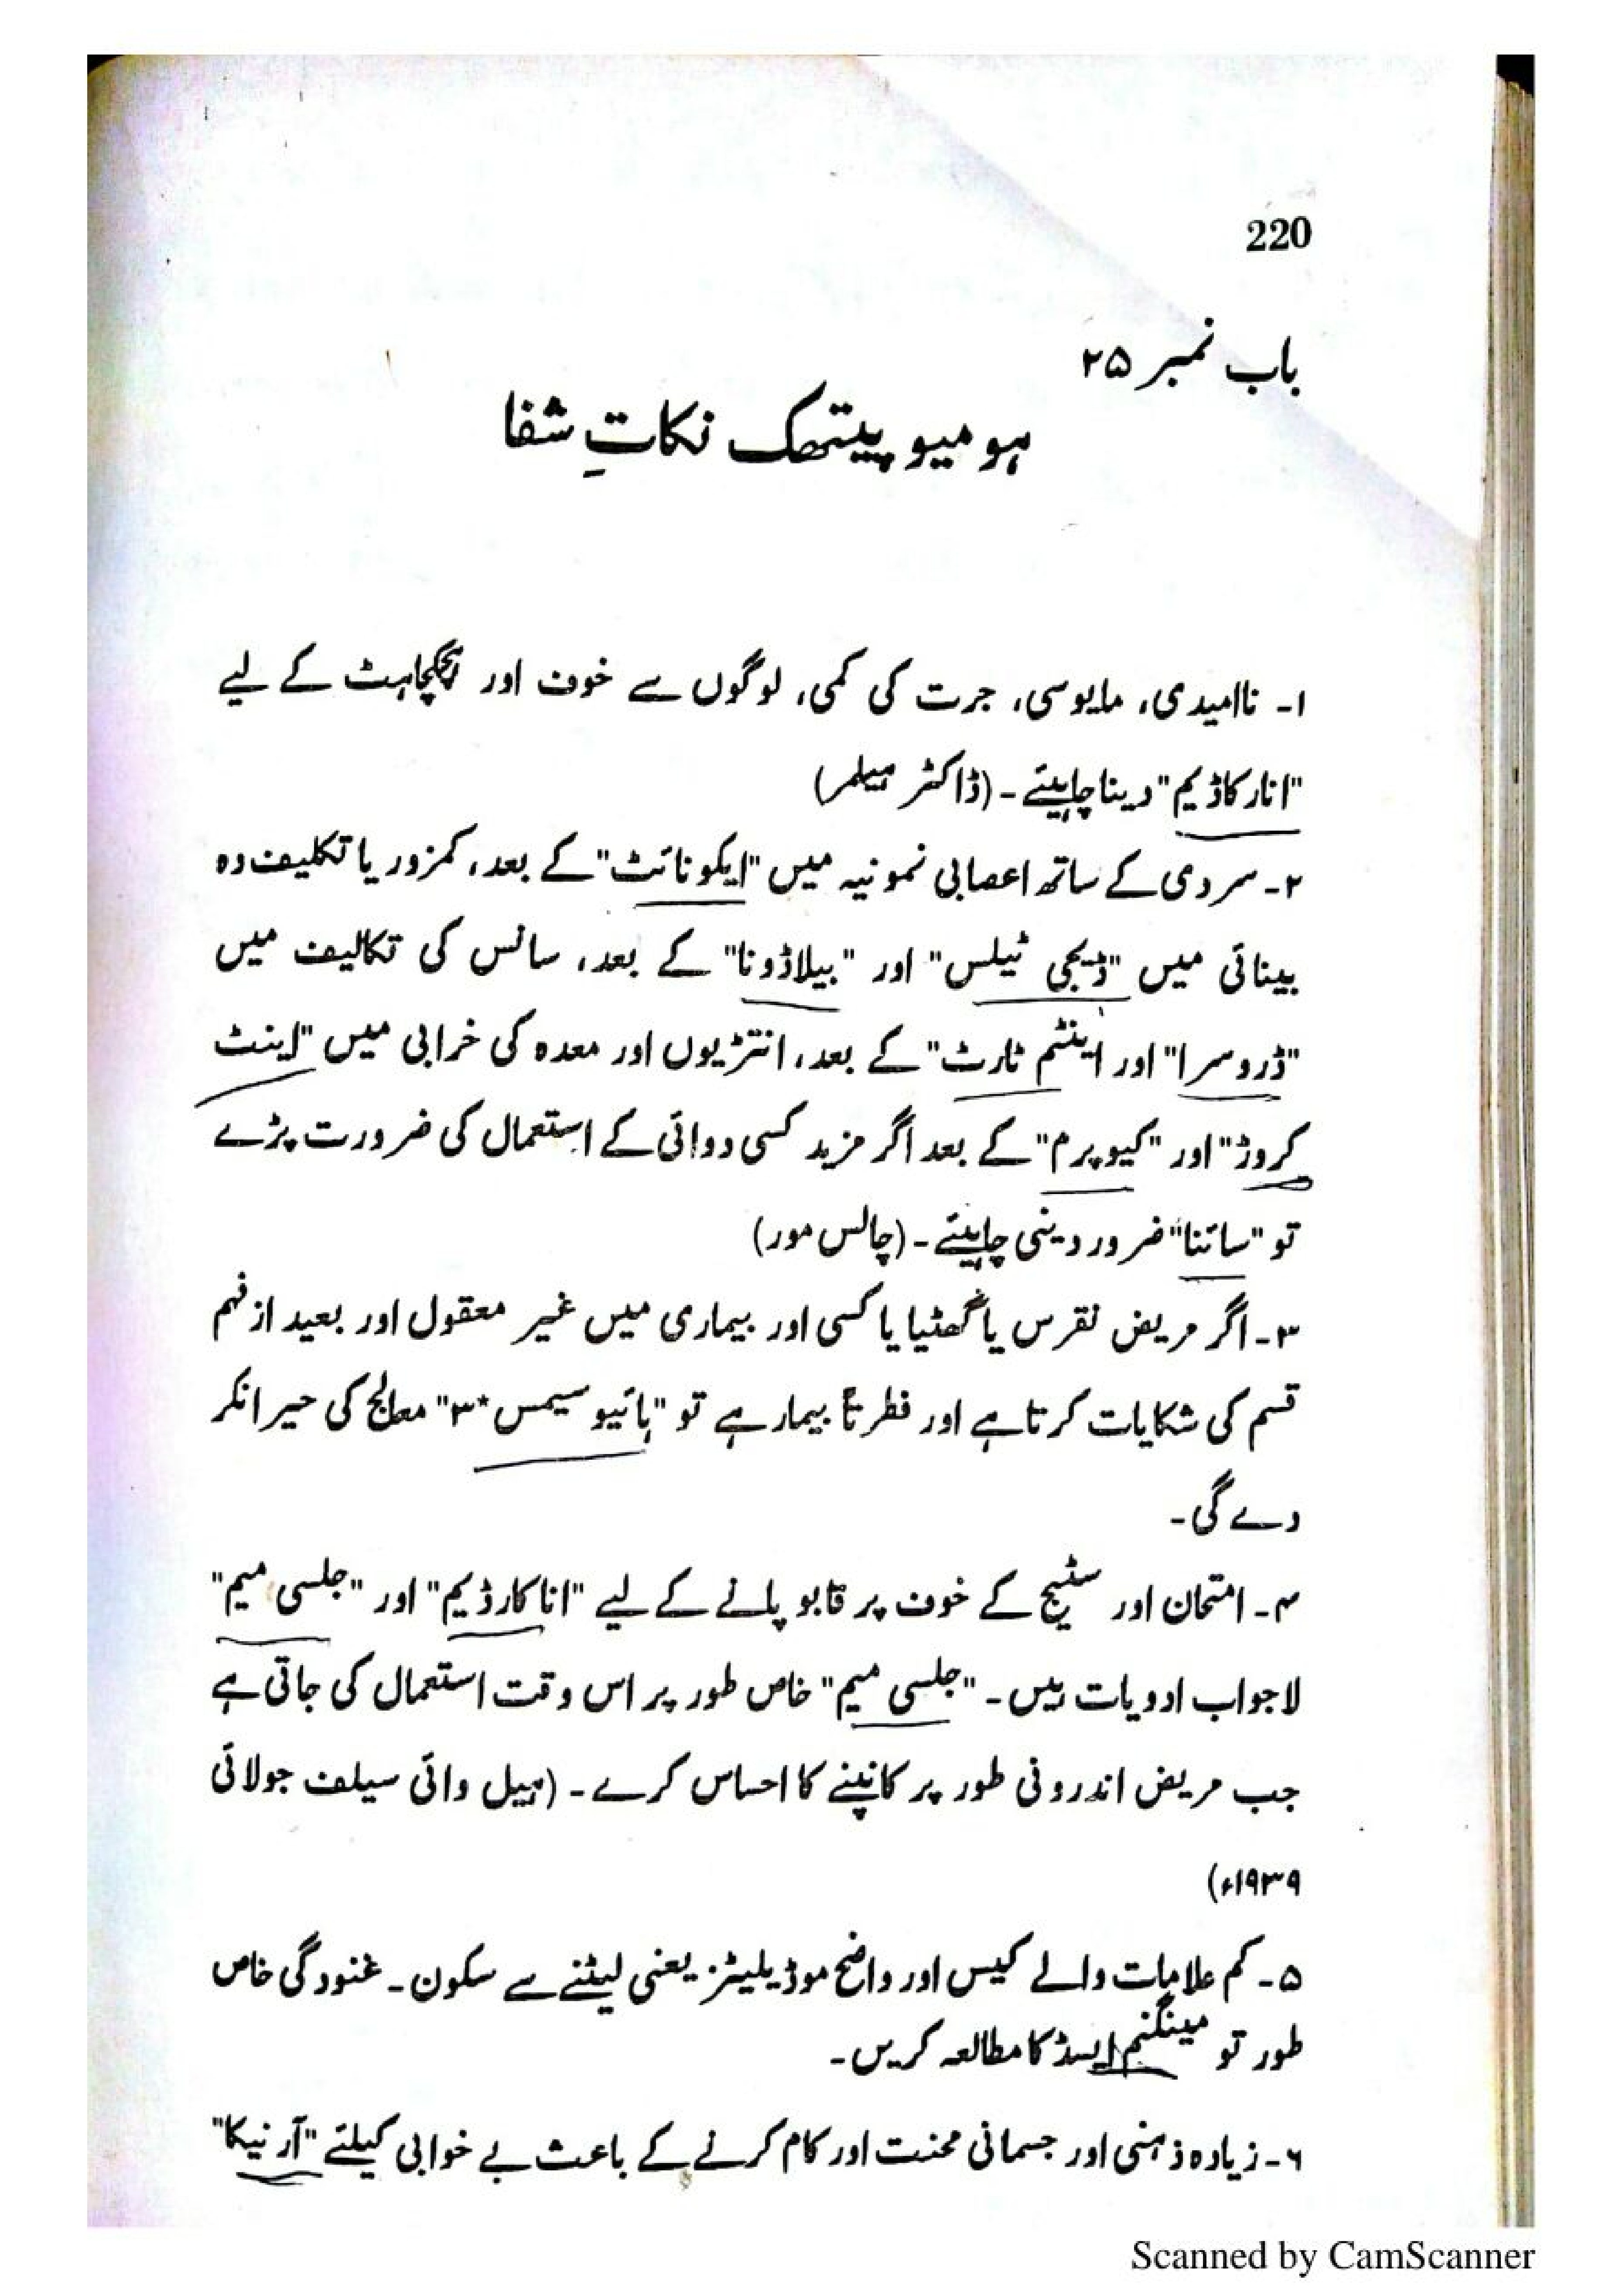 220
باب نمبر ۲۵
ہومیو پیتھک نکاتِ شفا
۱۔ ناامیدی، مایوسی، جرت کی کمی، لوگوں سے خوف اور ہچکچاہٹ کے لیے
"انارکاڈیم" دینا چاہیئے۔ (ڈاکٹر ہیلمر)
۲۔ سردی کے ساتھ اعصابی نمونیہ میں "ایکونائٹ" کے بعد، کمزور یا تکلیف دہ
بینائی میں "ڈیجی ٹیلس" اور "بیلاڈونا" کے بعد، سانس کی تکالیف میں
"ڈروسرا" اور اینٹم ٹارٹ" کے بعد، انتڑیوں اور معدہ کی خرابی میں "اینٹ
کروڑ" اور "کیوپرم" کے بعد اگر مزید کسی دوائی کے استعمال کی ضرورت پڑے
تو "سائنا" ضرور دینی چاہیئے۔ (چالس مور)
۳۔ اگر مریض نقرس یا گھٹیا یا کسی اور بیماری میں غیر معقول اور بعید از فہم
قسم کی شکایات کرتا ہے اور فطرتاً بیمار ہے تو "ہائیوسیمس *۳" معالج کی حیرانکر
دے گی۔
۴۔ امتحان اور سٹیج کے خوف پر قابو پانے کے لیے "اناکارڈیم" اور "جلسی میم"
لاجواب ادویات ہیں۔ "جلسی میم" خاص طور پر اس وقت استعمال کی جاتی ہے
جب مریض اندرونی طور پر کانپنے کا احساس کرے۔ (ہیل وائی سیلف جولائی
۱۹۳۹ء)
۵۔ کم علامات والے کیس اور واضح موڈیلیٹز یعنی لیٹنے سے سکون۔ غنودگی خاص
طور تو مینگنم ایسڈ کا مطالعہ کریں۔
۶۔ زیادہ ذہنی اور جسمانی محنت اور کام کرنے کے باعث بے خوابی کیلئے "آرنیکا"
Scanned by CamScanner